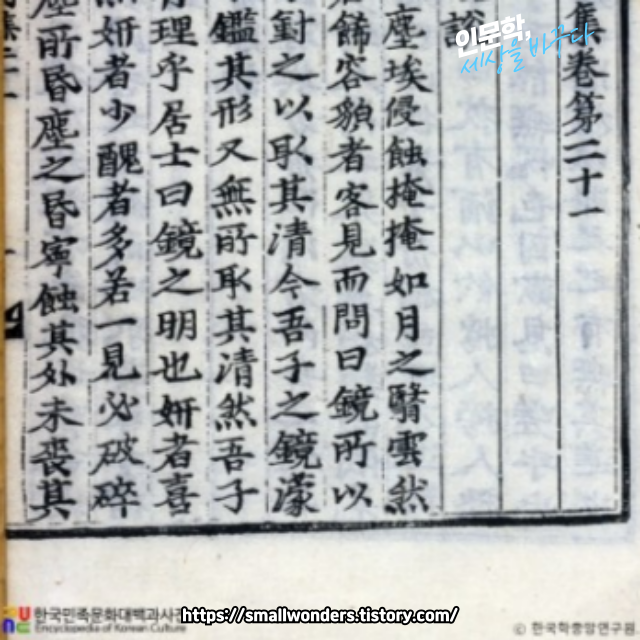 인문학,
세상을 바꾸다
集卷第二十一
說
塵埃侵蝕掩掩如月之翳雲然
飾容貌者客見而問曰鏡所以
對之以取其清今吾子之鏡濛
鑑其形又無所取其清然吾子
理乎居士曰鏡之明也妍者喜
妍者少醜者多若一見必破碎
塵所昏塵之昏寧蝕其外未喪其
한국민족문화대백과사전
Encyclopedia of Korean Culture
https://smallwonders.tistory.com/
© 한국학중앙연구원